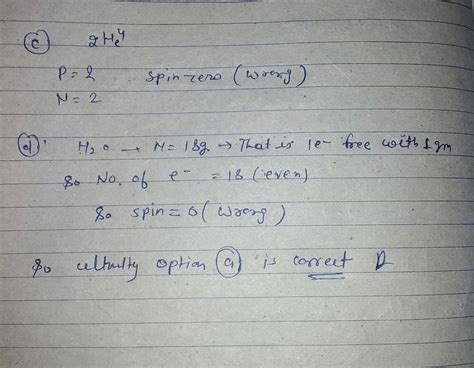 (c) ₂He⁴
P = 2 Spin-zero (Wrong)
N = 2
(d) H₂O → M = 18g → That is 1e⁻ free with 1gm
So No. of e⁻ = 18 (even)
So Spin = 0 (Wrong)
So option (a) is correct